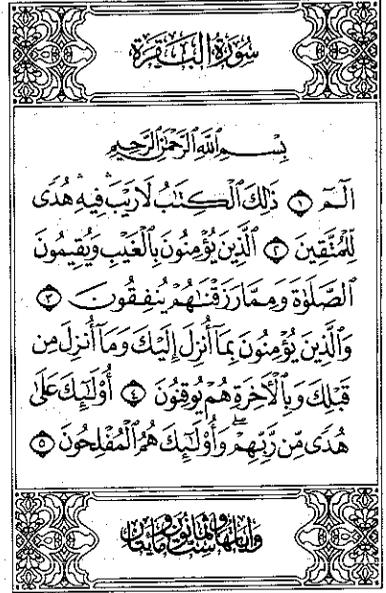 سُورَةُ الْبَقَرَةِ
بِسْمِ اللَّهِ الرَّحْمَٰنِ الرَّحِيمِ
الٓمٓ ١ ذَٰلِكَ الْكِتَٰبُ لَا رَيْبَ ۛ فِيهِ ۛ هُدًى
لِّلْمُتَّقِينَ ٢ الَّذِينَ يُؤْمِنُونَ بِالْغَيْبِ وَيُقِيمُونَ
الصَّلَوٰةَ وَمِمَّا رَزَقْنَٰهُمْ يُنفِقُونَ ٣
وَالَّذِينَ يُؤْمِنُونَ بِمَآ أُنزِلَ إِلَيْكَ وَمَآ أُنزِلَ مِن
قَبْلِكَ وَبِالْأَخِرَةِ هُمْ يُوقِنُونَ ٤ أُوْلَٰٓئِكَ عَلَىٰ
هُدًى مِّن رَّبِّهِمْ ۖ وَأُوْلَٰٓئِكَ هُمُ الْمُفْلِحُونَ ٥
وآياتها ست وثمانون ومايتان